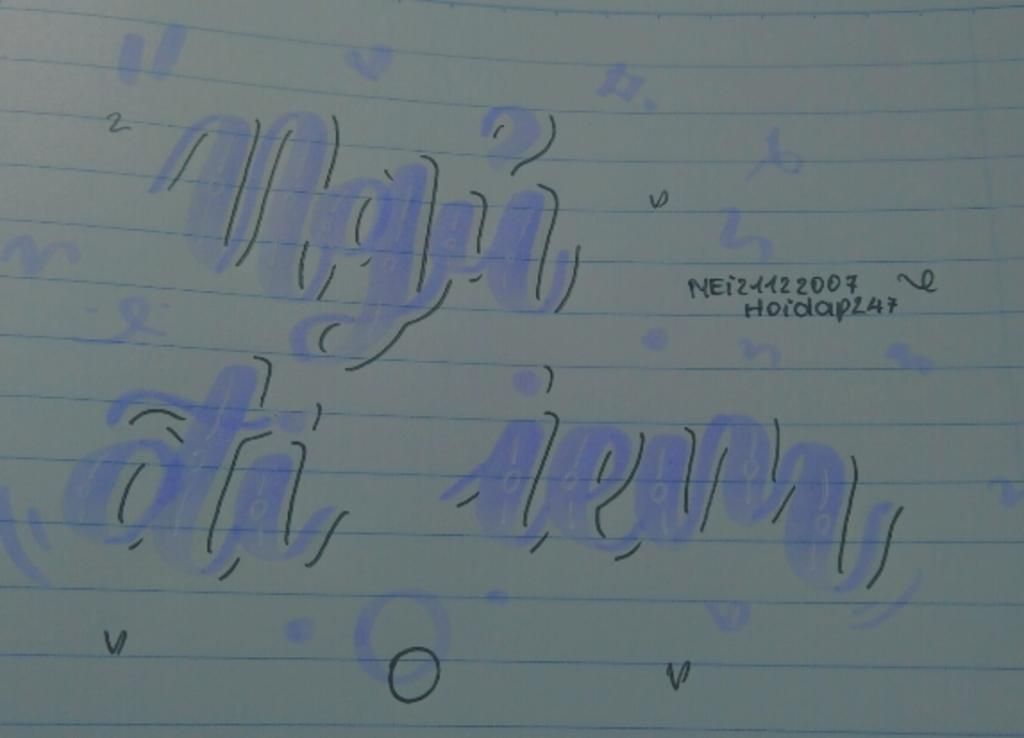 Ngủ
NEi21122007
Hoidap247
đti iem